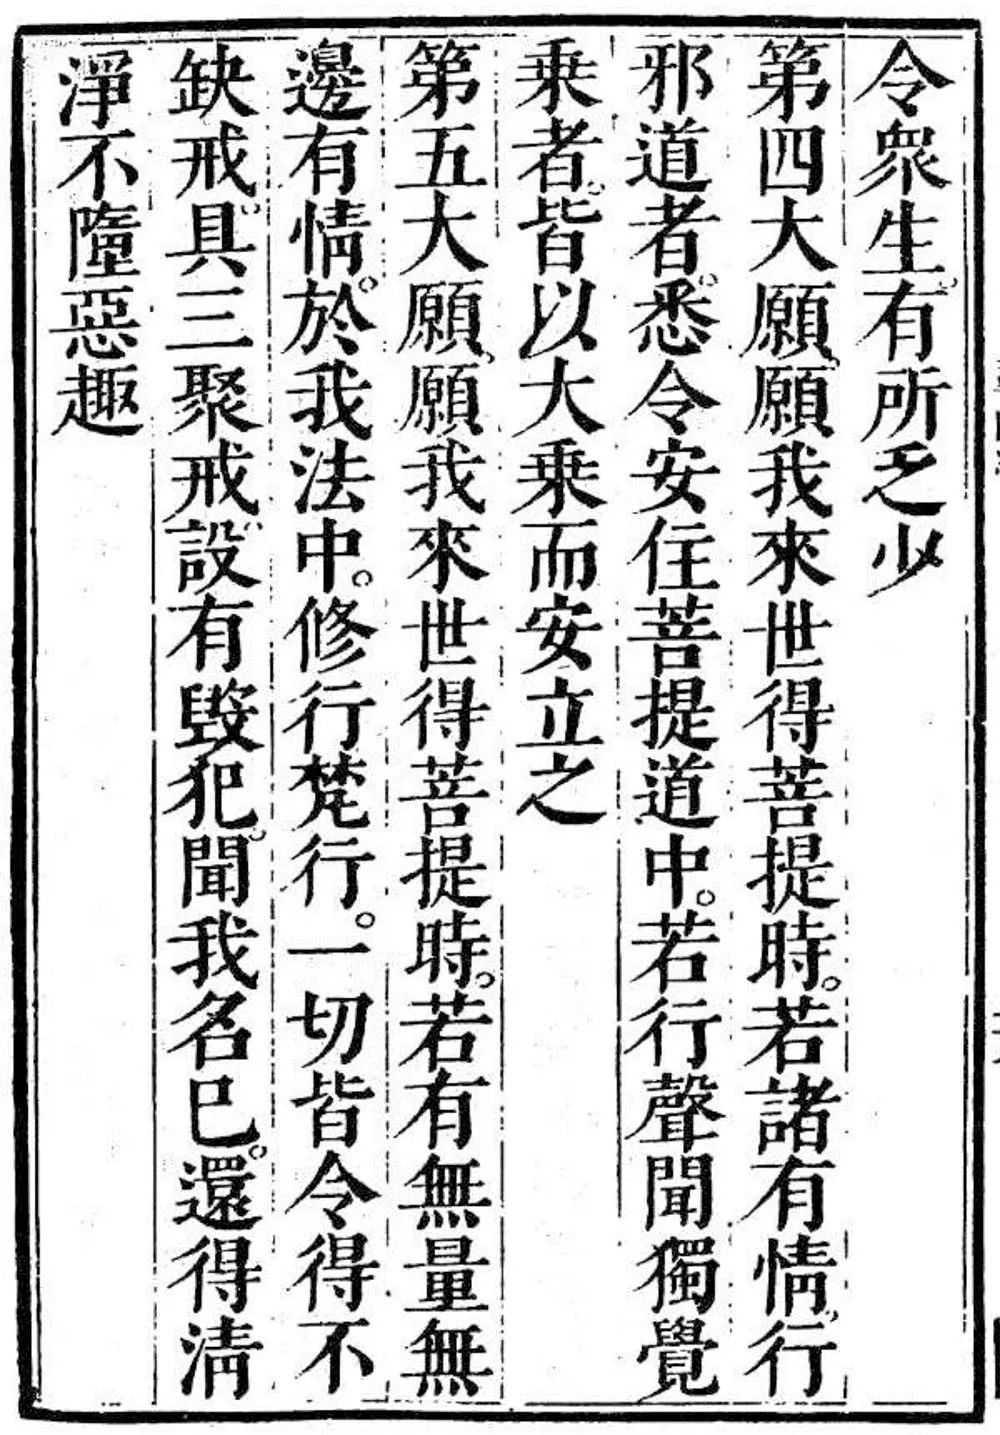 令衆生。有所乏少
第四大願。願我來世得菩提時。若諸有情。行
邪道者。悉令安住菩提道中。若行聲聞獨覺
乘者。皆以大乘而安立之
第五大願。願我來世得菩提時。若有無量無
邊有情。於我法中。修行梵行。一切皆令得不
缺戒。具三聚戒。設有毀犯。聞我名已。還得清
淨不墮惡趣